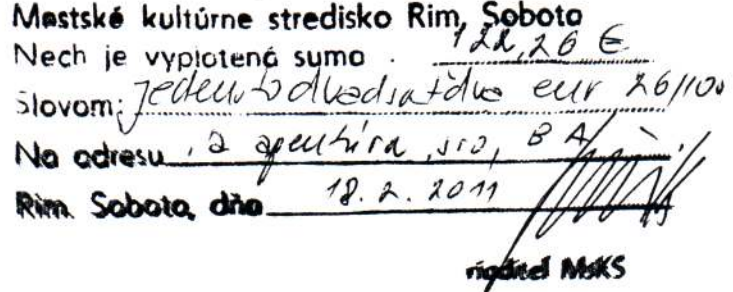 Mestské kultúrne stredisko Rim. Sobota
Nech je vyplatená suma 122,26 €
Slovom: jedenstodvadsaťdva eur 26/100
Na adresu , a , sro, BA
Rim. Sobota, dňa 18. 2. 2011
riaditeľ MsKS